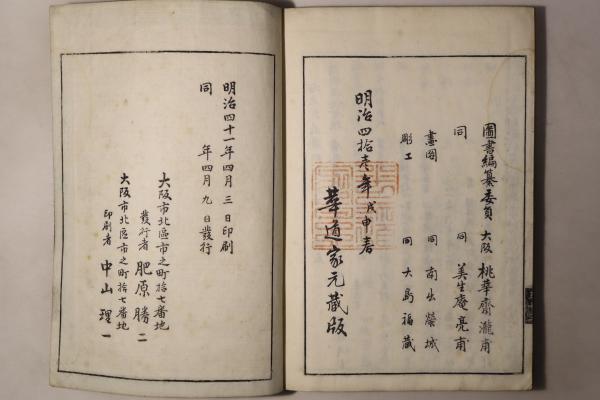 圖書編纂委員 大阪 桃華齋瀧甫
同 同 美生庵亮甫
畫圖 同 南出榮城
彫工 同 大島福藏
明治四拾壱年戊申春
華道家元藏版
明治四十一年四月三日印刷
同 年四月九日發行
大阪市北區市之町拾七番地
發行者 肥原勝二
大阪市北區市之町拾七番地
印刷者 中山理一